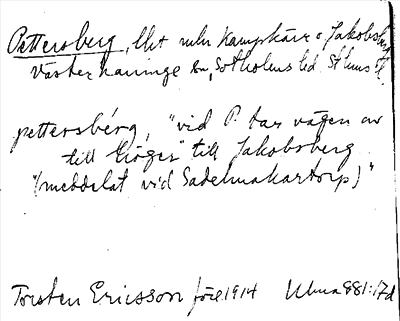 Pettersberg, lht mln Kampkärr o Jakobsberg
Västerhaninge sn, Sotholms hd, Sthlms l.
pettersbérg, "vid P. tar vägen av
till höger" till Jakobsberg
"(meddelat vid Sadelmakartorp)"
Torsten Ericsson före 1914 Uluna 881:17d